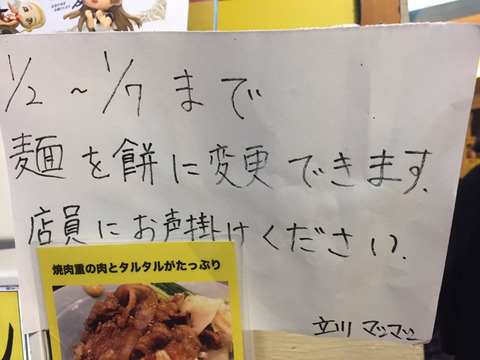 1/2 ~ 1/7 まで
麺を餅に変更できます.
店員にお声掛けください.
焼肉重の肉とタルタルがたっぷり
立川 マシマシ